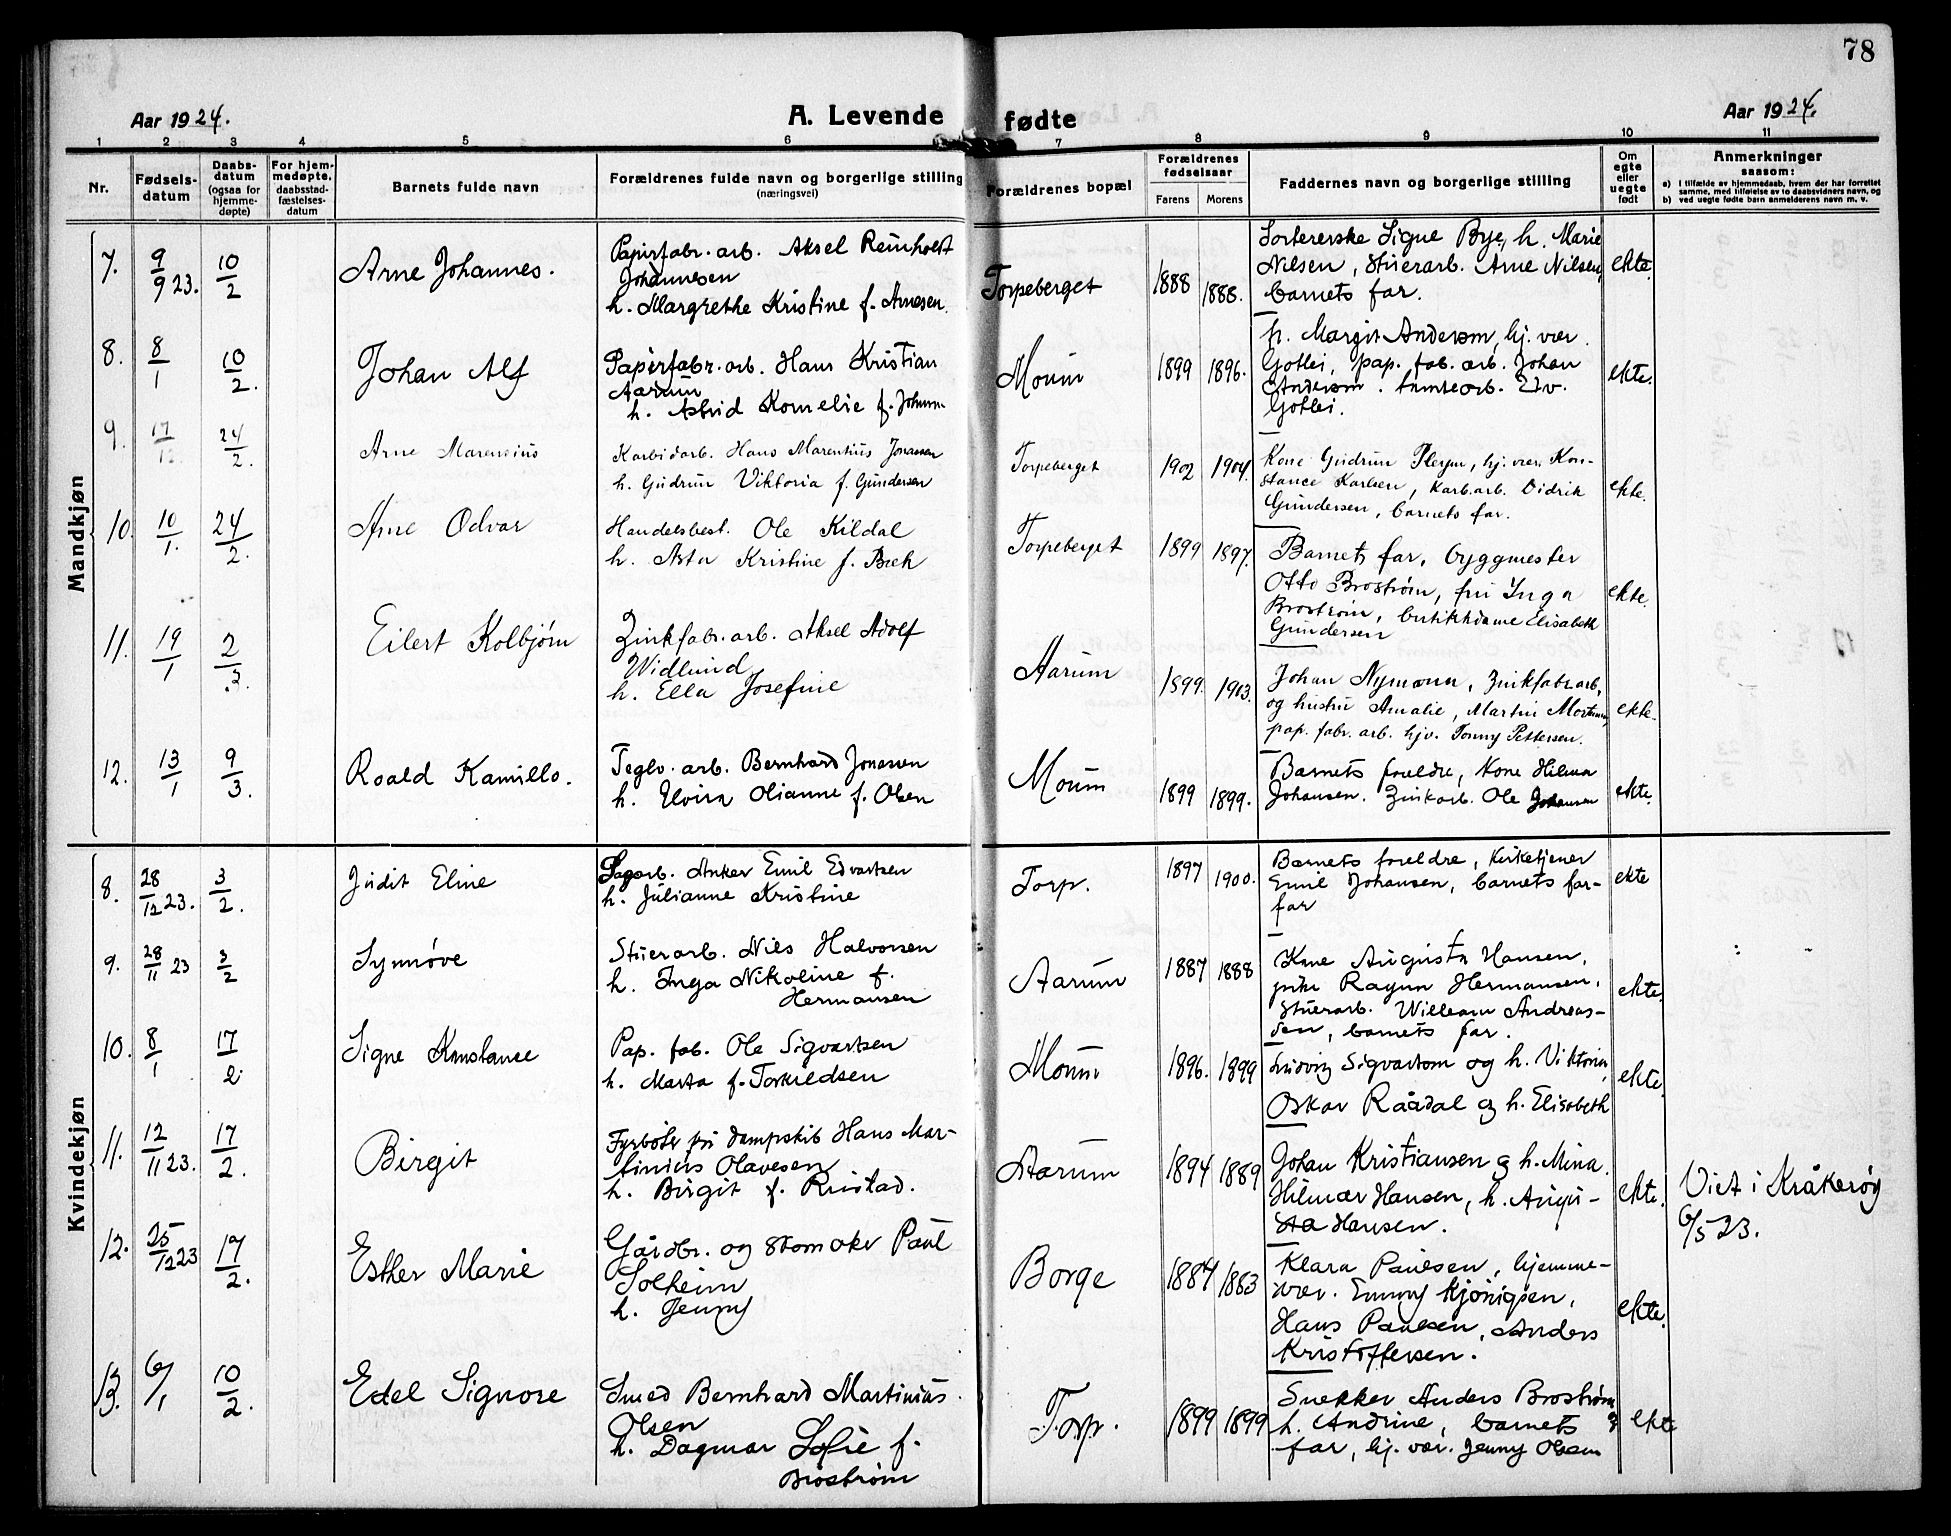 78
Aar 1924.
A. Levende fødte
Aar 1924.
1 2 3 4 5 6 7 8 9 10 11
Nr.
Fødsels-
datum
Daabs-
datum
(ogsaa for
hjemme-
døpte)
For hjem-
medøpte,
daabsstad-
fæstelses-
datum
Barnets fulde navn
Forældrenes fulde navn og borgerlige stilling
(næringsvei)
Forældrenes bopæl
Forældrenes
fødselsaar
Farens Morens
Faddernes navn og borgerlige stilling
Om
egte
eller
uegte
født
Anmerkninger
saasom:
a) I tilfælde av hjemmedaab, hvem der har forrettet
samme, med tilføielse av to daabsvidners navn, og
b) ved uegte fødte barn anmelderens navn m. v.
Mandkjøn
7. 9/9 23. 10/2 Arne Johannes.
Papirfabr. arb. Aksel Reinholdt
Johannesen
h. Margrethe Kristine f. Arnesen.
Torpeberget 1888 1888.
Sortererske Signe Bye, h. Marie
Nilsen, stuerarb. Arne Nilsen,
barnets far.
ekte.
8. 8/1 10/2. Johan Alf
Papirfabr. arb. Hans Kristian
Aarum
h. Astrid Kornelie f. Johann
Moum 1899 1896.
h. Margit Anderson, hj. vær.
Gotlei, pap. fab. arb. Johan
Anderson. arb. Edv.
Gotlei.
ekte.
9. 17/12 24/2. Arne Marensius
Karbidarb. Hans Marentius Jonassen
h. Gudrun Viktoria f. Gundersen
Torpeberget 1902 1904.
Kone Gudrun, hj. vær. Kon-
stance Karlsen, karb. arb. Didrik
Gundersen, barnets far.
ekte.
10. 10/1. 24/2. Arne Odvar
Handelsbest. Ole Kildal
h. Asta Kristine f. Bæk
Torpeberget 1899 1897.
Barnets far, byggmester
Otto Brostrøm, fru Inga
Brostrøm, butikkdame Elisabeth
Gundersen
ekte.
11. 19/1 2/3. Eilert Kolbjørn
Zinkfabr. arb. Aksel Adolf
Widlund
h. Ella Josefine
Aarum 1899. 1903.
Johan Nymann, Zinkfabr arb,
og hustru Amalie, Martin
pap. fabr. arb. hjv. Tonny Pettersen.
ekte.
12. 13/1 9/3. Roald Kamillo.
Teglv. arb. Bernhard Jonassen
h. Elvira Olianne f. Olsen
Moum 1899 1899.
Barnets foreldre, Kone Hilma
Johansen. Zinkarb. Ole Johansen
ekte.
Kvindekjøn
8. 28/12 23. 3/2. Judit Eline
Sagarb. Anker Emil Edvartsen
h. Julianne Kristine
Torp. 1897 1900.
Barnets foreldre, Kirketjener
Emil Johansen, barnets far-
far
ekte
9. 28/11 23 3/2 Synnøve
Stuerarb. Nils Halvorsen
h. Inga Nikoline f.
Hermansen
Aarum 1887 1888
Kone Augusta Hansen,
pike Ragna Hermansen,
stuerarb. William Andreas-
sen, barnets far.
ekte.
10. 8/1 17/2 Signe Konstance
Pap. fab. Ole Sigvartsen
h. Marta f. Torkildsen
Moum 1896. 1899
Ludvig Sigvartsen og h. Viktoria,
Oskar Raådal og h. Elisabeth
ekte.
11. 12/11 23. 17/2. Birgit
Fyrbøter på dampskib Hans Mar-
tinius Olavesen
h. Birgit f. Rustad.
Aarum 1894 1889
Johan Kristiansen og h. Mina.
Hilmar Hansen, h. Augu-
sta Hansen.
ekte.
Viet i Kråkerøy
6/5 23.
12. 25/12 23 17/2. Esther Marie
Gårdbr. og skomaker Paul
Solheim
h. Jenny
Borge 1884 1883
Klara Paulsen, hjemme-
vær. Emmy Kjönigsen,
Hans Paulsen, Anders
Kristoffersen.
ekte.
13. 6/1 10/2. Edel Signore
Smed Bernhard Martinius
Olsen
h. Dagmar Sofie f.
Brostrøm
Torp. 1899 1899
Snekker Anders Brostrøm og
h. Andrine, barnets
far, hj. vær. Jenny Olsen
ekte